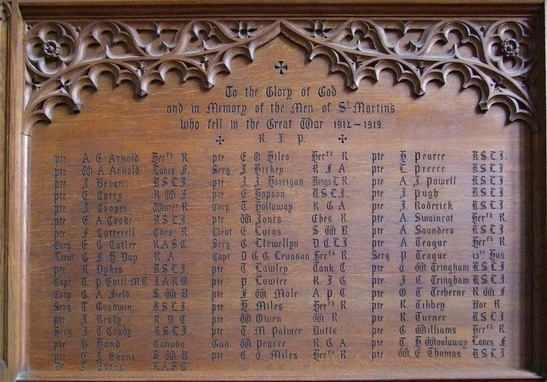 To the Glory of God
and in Memory of the Men of St Martin's
who fell in the Great War 1914–1919.
R. I. P.
pte A E Arnold Herfd R
pte W A Arnold Lancs F
pte J Bevan K S L I
pte E Carey R W F
pte J Cooper Worst R
pte E A Cooke K S L I
pte F Cotterell Ches R
Corp E G Cutler R A S C
Lieut C F H Day R A
pte R Dykes K S L I
Capt C P I A R O
Corp G A Field S W B
Serg T Goodwin K S L I
pte J Grady R D C
Serg J T Grady K S L I
pte B Hand Canada
pte E J Evans S W B
F Evans R A S C
pte E O Hiles Herfd R
Serg J Hickey R F A
pte J J Horrigan Kings L R
pte E Hopson K S L I
Corp T Holloway R G A
pte W Jones Ches R
Lieut E Lucas S W B
Serg C Llewellyn D C L I
Capt D G G Herfd R
pte T Lawley Tank C
pte P Lawler R I G
pte F W Mole A P C
pte H Miles Herfd R
pte W Owen W R
pte T M Palmer Buffs
Gun W Pearce R G A
pte C E Miles Herfd R
pte H Pearce K S L I
pte L Preece K S L I
pte A J Powell K S L I
pte J Pugh K S L I
pte J Roderick K S L I
pte A Swaincot Herfd R
pte A Saunders K S L I
pte A Teague Herfd R
Serg P Teague Hus
pte C W Tringham K S L I
pte J C Tringham K S L I
pte O T Treherne R W F
pte R Tibbey Bor R
pte R Turner K S L I
pte G Williams Herfd R
pte T H Woolaway Lancs F
pte W E Thomas K S L I